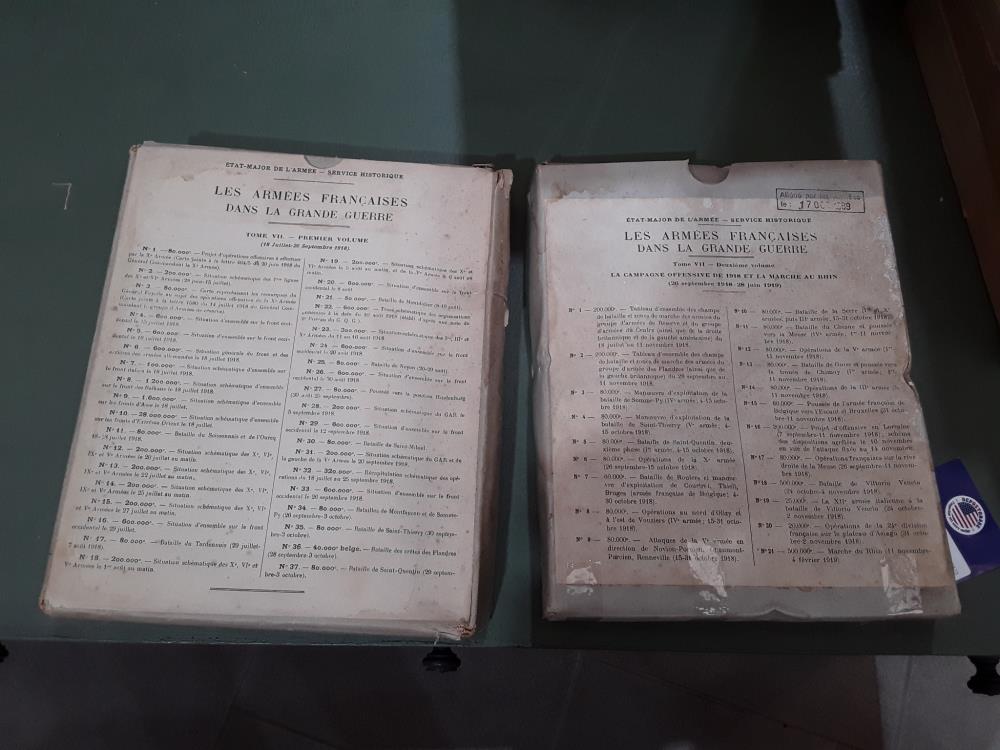 ÉTAT-MAJOR DE L'ARMÉE — SERVICE HISTORIQUE
LES ARMÉES FRANÇAISES
DANS LA GRANDE GUERRE
TOME VII. — PREMIER VOLUME
(18 Juillet-26 Septembre 1918).
N° 1 — 80.000e. — Projet d'opérations offensives à effectuer
par la Xe Armée (Carte jointe à la lettre du 20 juin 1918 du
Général Commandant la Xe Armée).
N° 2. — 200.000e. — Situation schématique des 1res lignes
des Xe et VIe Armées (28 juin-15 juillet).
N° 3. — 80.000e. — Carte reproduisant les remarques du
N° 4. — 600.000e. — Situation d'ensemble sur le front occi-
dental le 15 juillet 1918.
N° 5. — 600.000e. — Situation d'ensemble sur le front occi-
dental le 18 juillet 1918.
N° 6. — 600.000e. — Situation générale du front et des
le 18 juillet 1918.
N° 7. — 100.000e. — Situation d'ensemble sur
le front italien le 18 juillet 1918.
N° 8. — 1.200.000e. — Situation schématique d'ensemble
sur le front des Balkans le 18 juillet 1918.
N° 9. — 1.600.000e. — Situation schématique d'ensemble
sur les fronts d'Asie le 18 juillet 1918.
N° 10. — 28.000.000e. — Situation schématique d'ensemble
sur les fronts d'Extrême Orient le 18 juillet.
N° 11. — 80.000e. — Bataille du Soissonnais et de l'Ourcq
18-25 juillet 1918.
N° 12. — 200.000e. — Situation schématique des Xe, VIe,
IXe et Ve Armées le 20 juillet au matin.
N° 13. — 200.000e. — Situation schématique des Xe, VIe,
IXe et Ve Armées le 22 juillet au matin.
N° 14. — 200.000e. — Situation schématique des Xe, VIe,
IXe et Ve Armées le 25 juillet au matin.
N° 15. — 200.000e. — Situation schématique des Xe, VIe
et Ve Armées le 27 juillet au matin.
N° 16. — 600.000e. — Situation d'ensemble sur le front
occidental le 29 juillet.
N° 17. — 80.000e. — Bataille du Tardenois (29 juillet-
7 août 1918).
N° 18. — 200.000e. — Situation schématique des Xe, VIe et
Ve Armées le 1er août au matin.
N° 19. — 200.000e. — Situation schématique des Xe et
VIe Armées le 5 août au matin, et de la Ve Armée le 6 août au
matin.
N° 20. — 600.000e. — Situation d'ensemble sur le front
occidental le 8 août
N° 21. — 80.000e. — Bataille de Montdidier (8-10 août).
N° 22. — 600.000e. — Tracé schématique des organisations
N° 23. — 200.000e. — Situation schématique des Ire, IIIe et
Xe Armées du 11 au 16 août 1918
N° 24. — 600.000e. — Situation d'ensemble sur le front
occidental le 20 août 1918.
N° 25. — 80.000e. — Bataille de Noyon (20-29 août).
N° 26. — 600.000e. — Situation d'ensemble sur le front
occidental le 30 août 1918.
N° 27. — 80.000e. — Poussée vers la position Hindenburg
N° 28. — 200.000e. — Situation schématique du GAR le
5 septembre 1918.
N° 29. — 600.000e. — Situation d'ensemble sur le front
occidental le 12 septembre 1918
N° 30. — 80.000e. — Bataille de Saint-Mihiel.
N° 31. — 200.000e. — Situation schématique du GAR et de
la gauche de la Ve Armée le 20 septembre 1918.
N° 32. — 320.000e. — Récapitulation schématique des opé-
rations du 18 juillet au 25 septembre 1918.
N° 33. — 600.000e. — Situation d'ensemble sur le front
occidental le 26 septembre 1918
N° 34. — 80.000e. — Batailles de Montfaucon et de Somme-
Py (26 septembre-3 octobre).
N° 35. — 80.000e. — Bataille de Saint-Thierry (30 septem-
bre-3 octobre).
N° 36. — 40.000e belge. — Bataille des crêtes des Flandres
(28 septembre-3 octobre).
N° 37. — 80.000e. — Bataille de Saint-Quentin (29 septem-
bre-3 octobre).
le : 17
ÉTAT-MAJOR DE L'ARMÉE — SERVICE HISTORIQUE
LES ARMÉES FRANÇAISES
DANS LA GRANDE GUERRE
Tome VII — Deuxième volume
LA CAMPAGNE OFFENSIVE DE 1918 ET LA MARCHE AU RHIN
(26 septembre 1918-28 juin 1919)
N° 1 — 200.000e. — Tableau d'ensemble des champs
de bataille et zones de marche des armées du
groupe d'armées de Réserve et du groupe
d'armées du Centre (ainsi que de la droite
britannique et de la gauche américaine) du
18 juillet au 11 novembre 1918.
N° 2 — 200.000e. — Tableau d'ensemble des champs
de bataille et zones de marche des armées du
groupe d'armées des Flandres (ainsi que de
la gauche britannique) du 28 septembre au
11 novembre 1918.
N° 3 — 80.000e. — Manœuvre d'exploitation de la
bataille de Somme-Py (IVe armée, 4-15 octo-
bre 1918).
N° 4 — 80.000e. — Manœuvre d'exploitation de la
bataille de Saint-Thierry (Ve armée, 4-
15 octobre 1918).
N° 5 — 80.000e. — Bataille de Saint-Quentin, deu-
xième phase (Ire armée, 4-15 octobre 1918).
N° 6 — 80.000e. — Opérations de la Xe armée
(26 septembre-15 octobre 1918).
N° 7 — 60.000e. — Bataille de Roulers et manœu-
vre d'exploitation de Courtrai, Thielt,
Bruges (armée française de Belgique; 4-
30 octobre 1918).
N° 8 — 80.000e. — Opérations au nord d'Olizy et
à l'est de Vouziers (IVe armée; 15-31 octo-
bre 1918).
N° 9 — 80.000e. — Attaques de la Ve armée en
direction de Novion-Porcien, Chaumont-
Porcien, Renneville (15-31 octobre 1918).
N° 10 — 80.000e. — Bataille de la Serre
N° 11 — 80.000e. — Bataille du Chesne et poussée
vers la Meuse (IVe armée, 1er-11 novem-
bre 1918).
N° 12 — 80.000e. — Opérations de la Ve armée (1er-
11 novembre 1918).
N° 13 — 80.000e. — Bataille de Guise et poussée vers
la trouée de Chimay (Ire armée, 1er-
11 novembre 1918).
N° 14 — 80.000e. — Opérations de la IIIe armée
11 novembre 1918).
N° 15 — 60.000e. — Poussée de l'armée française de
Belgique vers l'Escaut et Bruxelles (31 octo-
bre-11 novembre 1918).
N° 16 — 200.000e. — Projet d'offensive en Lorraine
(7 septembre-11 novembre 1918), schéma
des dispositions arrêtées le 10 novembre
en vue de l'attaque fixée au 14 novembre.
N° 17 — 80.000e. — Opérations françaises sur la rive
droite de la Meuse (26 septembre-11 novem-
bre 1918).
N° 18 — 500.000e. — Bataille de Vittorio Veneto
(24 octobre-4 novembre 1918).
N° 19 — 25.000e. — La XIIe armée italienne à la
bataille de Vittorio Veneto (24 octobre-
2 novembre 1918).
N° 20 — 20.000e. — Opérations de la 24e division
française sur le plateau d'Asiago (31 octo-
bre-2 novembre 1918).
N° 21 — 500.000e. — Marche du Rhin (11 novembre-
4 février 1919)